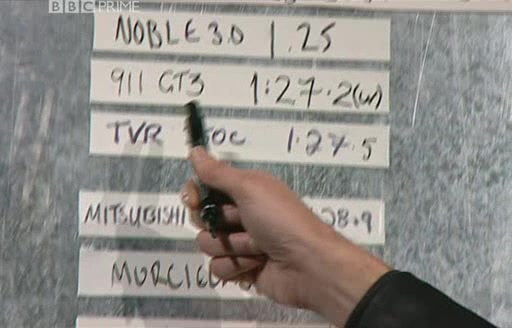 BBC PRIME
NOBLE 3.0 1.25
911 GT3 1:27.2(w)
TVR 1.27.5
MITSUBISHI 28.9